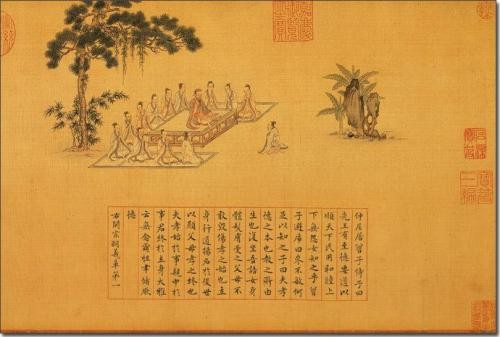 嘉慶御覽之寶
仲尼居曾子侍子曰
先王有至德要道以
順天下民用和睦上
下無怨女知之乎曾
子避席曰參不敏何
足以知之子曰夫孝
德之本也教之所由
生也復坐吾語女身
體髮膚受之父母不
敢毀傷孝之始也立
身行道揚名於後世
以顯父母孝之終也
夫孝始於事親中於
事君終於立身大雅
云無念爾祖聿脩厥
德
右開宗明義章第一